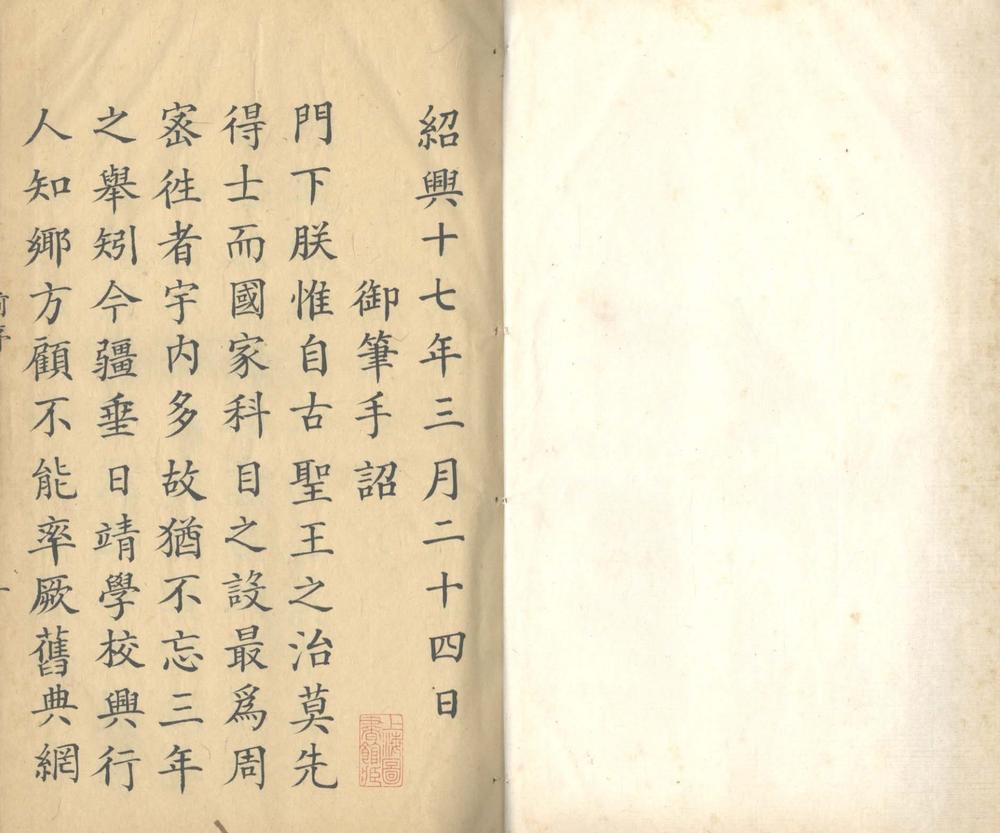 紹興十七年三月二十四日
御筆手詔
門下朕惟自古聖王之治莫先
得士而國家科目之設最爲周
宻徃者宇内多故猶不忘三年
之舉矧今疆垂日靖學校興行
人知鄉方顧不能率厥舊典網
上海圖
書館藏